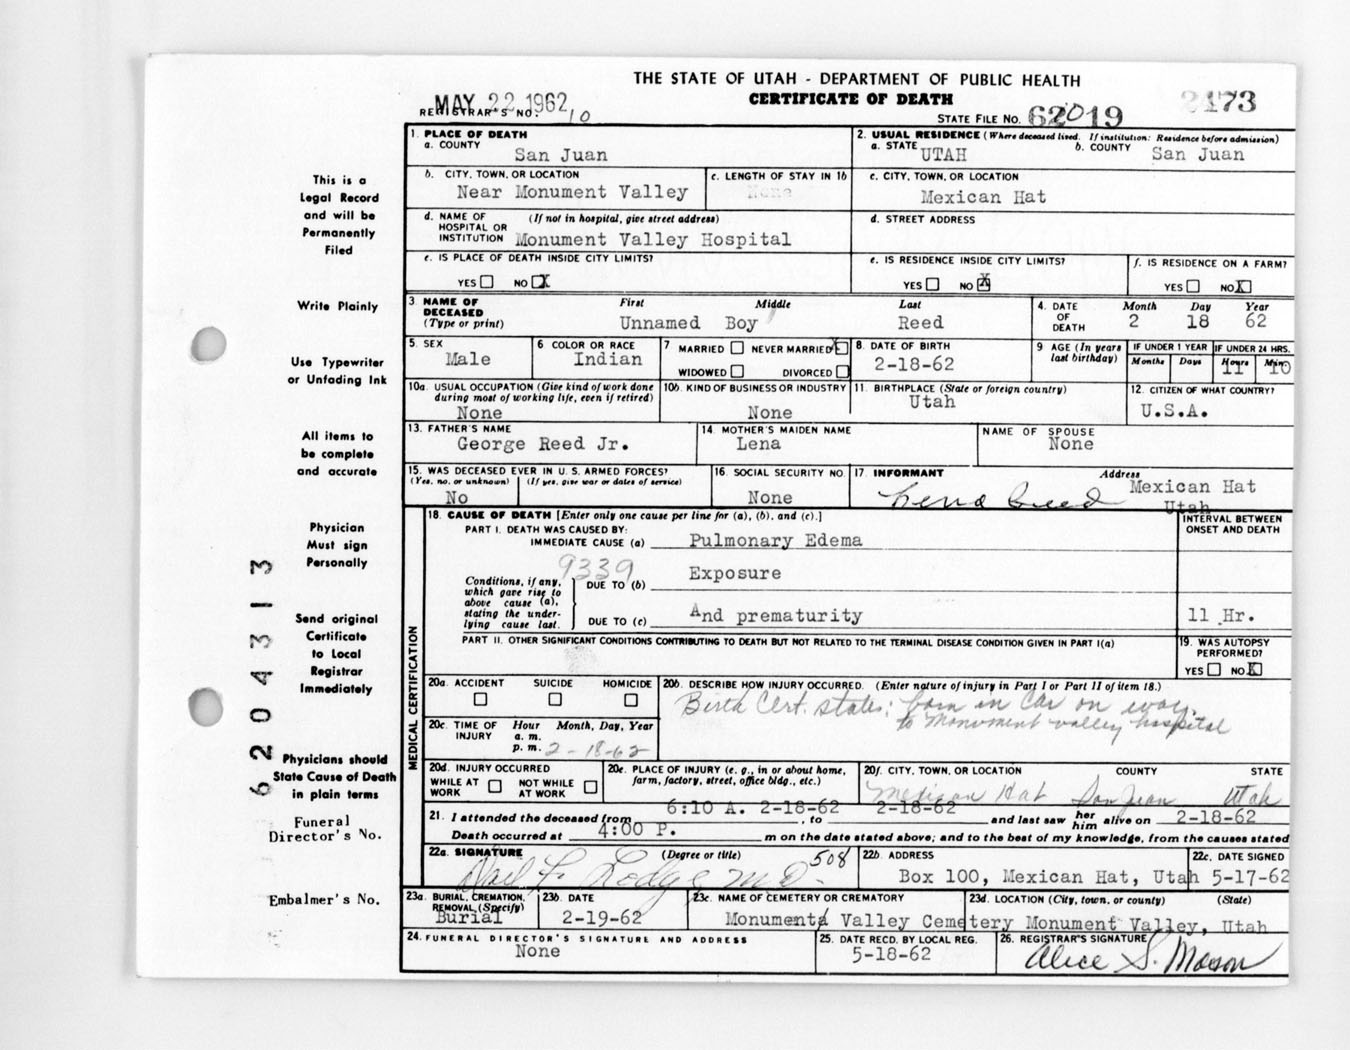 THE STATE OF UTAH - DEPARTMENT OF PUBLIC HEALTH
CERTIFICATE OF DEATH
MAY 22 1962
REGISTRAR'S NO. 10
STATE FILE NO. 62 019
2173
This is a
Legal Record
and will be
Permanently
Filed
Write Plainly
Use Typewriter
or Unfading Ink
All items to
be complete
and accurate
Physician
Must sign
Personally
Send original
Certificate
to Local
Registrar
Immediately
Physicians should
State Cause of Death
in plain terms
Funeral
Director's No.
Embalmer's No.
6204313
1. PLACE OF DEATH
a. COUNTY San Juan
2. USUAL RESIDENCE (Where deceased lived. If institution: Residence before admission)
a. STATE UTAH b. COUNTY San Juan
b. CITY, TOWN, OR LOCATION
Near Monument Valley
c. LENGTH OF STAY IN 1b
None
c. CITY, TOWN, OR LOCATION
Mexican Hat
d. NAME OF HOSPITAL OR INSTITUTION (If not in hospital, give street address)
Monument Valley Hospital
d. STREET ADDRESS
e. IS PLACE OF DEATH INSIDE CITY LIMITS?
YES NO X
e. IS RESIDENCE INSIDE CITY LIMITS?
YES NO X
f. IS RESIDENCE ON A FARM?
YES NO X
3. NAME OF DECEASED (Type or print)
First Middle Last
Unnamed Boy Reed
4. DATE OF DEATH
Month Day Year
2 18 62
5. SEX
Male
6 COLOR OR RACE
Indian
7 MARRIED NEVER MARRIED X
WIDOWED DIVORCED
8. DATE OF BIRTH
2-18-62
9 AGE (In years last birthday)
IF UNDER 1 YEAR
Months Days
IF UNDER 24 HRS.
Hours Min.
11 10
10a. USUAL OCCUPATION (Give kind of work done during most of working life, even if retired)
None
10b. KIND OF BUSINESS OR INDUSTRY
None
11. BIRTHPLACE (State or foreign country)
Utah
12. CITIZEN OF WHAT COUNTRY?
U.S.A.
13. FATHER'S NAME
George Reed Jr.
14. MOTHER'S MAIDEN NAME
Lena
NAME OF SPOUSE
None
15. WAS DECEASED EVER IN U. S. ARMED FORCES?
(Yes, no, or unknown) (If yes, give war or dates of service)
No
16. SOCIAL SECURITY NO.
None
17. INFORMANT Address
Lena Greed Mexican Hat
Utah
MEDICAL CERTIFICATION
18. CAUSE OF DEATH [Enter only one cause per line for (a), (b), and (c).]
INTERVAL BETWEEN ONSET AND DEATH
PART I. DEATH WAS CAUSED BY:
IMMEDIATE CAUSE (a) Pulmonary Edema
9339
Conditions, if any, which gave rise to above cause (a), stating the underlying cause last.
DUE TO (b) Exposure
DUE TO (c) And prematurity
11 Hr.
PART II. OTHER SIGNIFICANT CONDITIONS CONTRIBUTING TO DEATH BUT NOT RELATED TO THE TERMINAL DISEASE CONDITION GIVEN IN PART I(a)
19. WAS AUTOPSY PERFORMED?
YES NO X
20a. ACCIDENT SUICIDE HOMICIDE
20b. DESCRIBE HOW INJURY OCCURRED. (Enter nature of injury in Part I or Part II of item 18.)
Birth Cert. states: born in Car on way.
to Monument valley hospital
20c. TIME OF INJURY Hour Month, Day, Year
a. m.
p. m. 2-18-62
20d. INJURY OCCURRED
WHILE AT WORK NOT WHILE AT WORK
20e. PLACE OF INJURY (e. g., in or about home, farm, factory, street, office bldg., etc.)
20f. CITY, TOWN, OR LOCATION COUNTY STATE
Mexican Hat San Juan Utah
21. I attended the deceased from 6:10 A. 2-18-62, to 2-18-62 and last saw her him alive on 2-18-62
Death occurred at 4:00 P. m on the date stated above; and to the best of my knowledge, from the causes stated
22a. SIGNATURE (Degree or title) 508
M.D.
22b. ADDRESS
Box 100, Mexican Hat, Utah
22c. DATE SIGNED
5-17-62
23a. BURIAL, CREMATION, REMOVAL, (Specify)
Burial
23b. DATE
2-19-62
23c. NAME OF CEMETERY OR CREMATORY
Monument Valley Cemetery
23d. LOCATION (City, town, or county) (State)
Monument Valley, Utah
24. FUNERAL DIRECTOR'S SIGNATURE AND ADDRESS
None
25. DATE RECD. BY LOCAL REG.
5-18-62
26. REGISTRAR'S SIGNATURE
Alice S. Mason